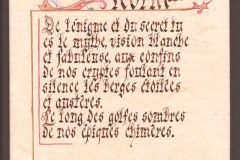 De l'énigme et du secret tu
es le mythe, vision blanche
et fabuleuse, aux confins
de nos cryptes foulant en
silence les berges étoilées
et austères.
Le long des golfes sombres
de nos épiques chimères.